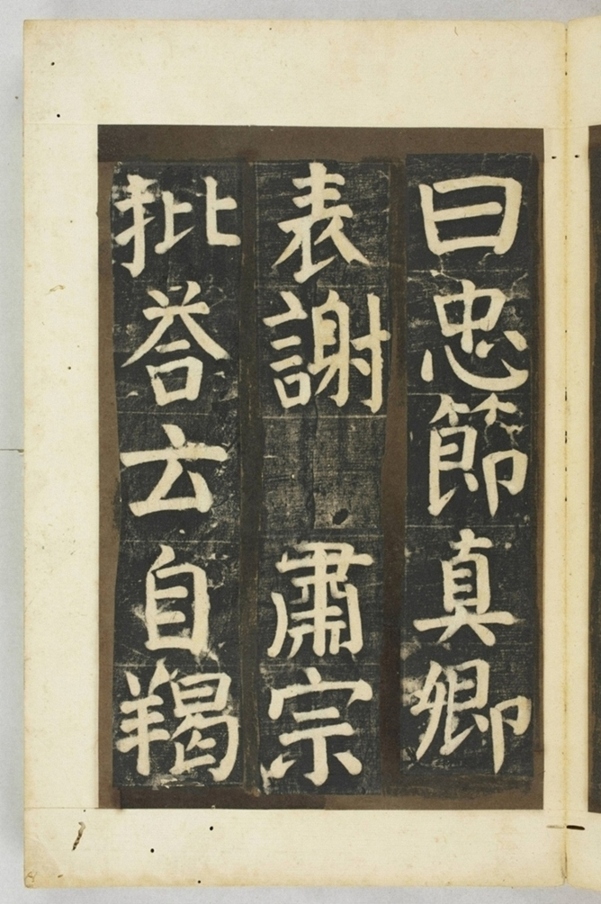 曰忠節真卿
表謝 肅宗
批荅云自羯